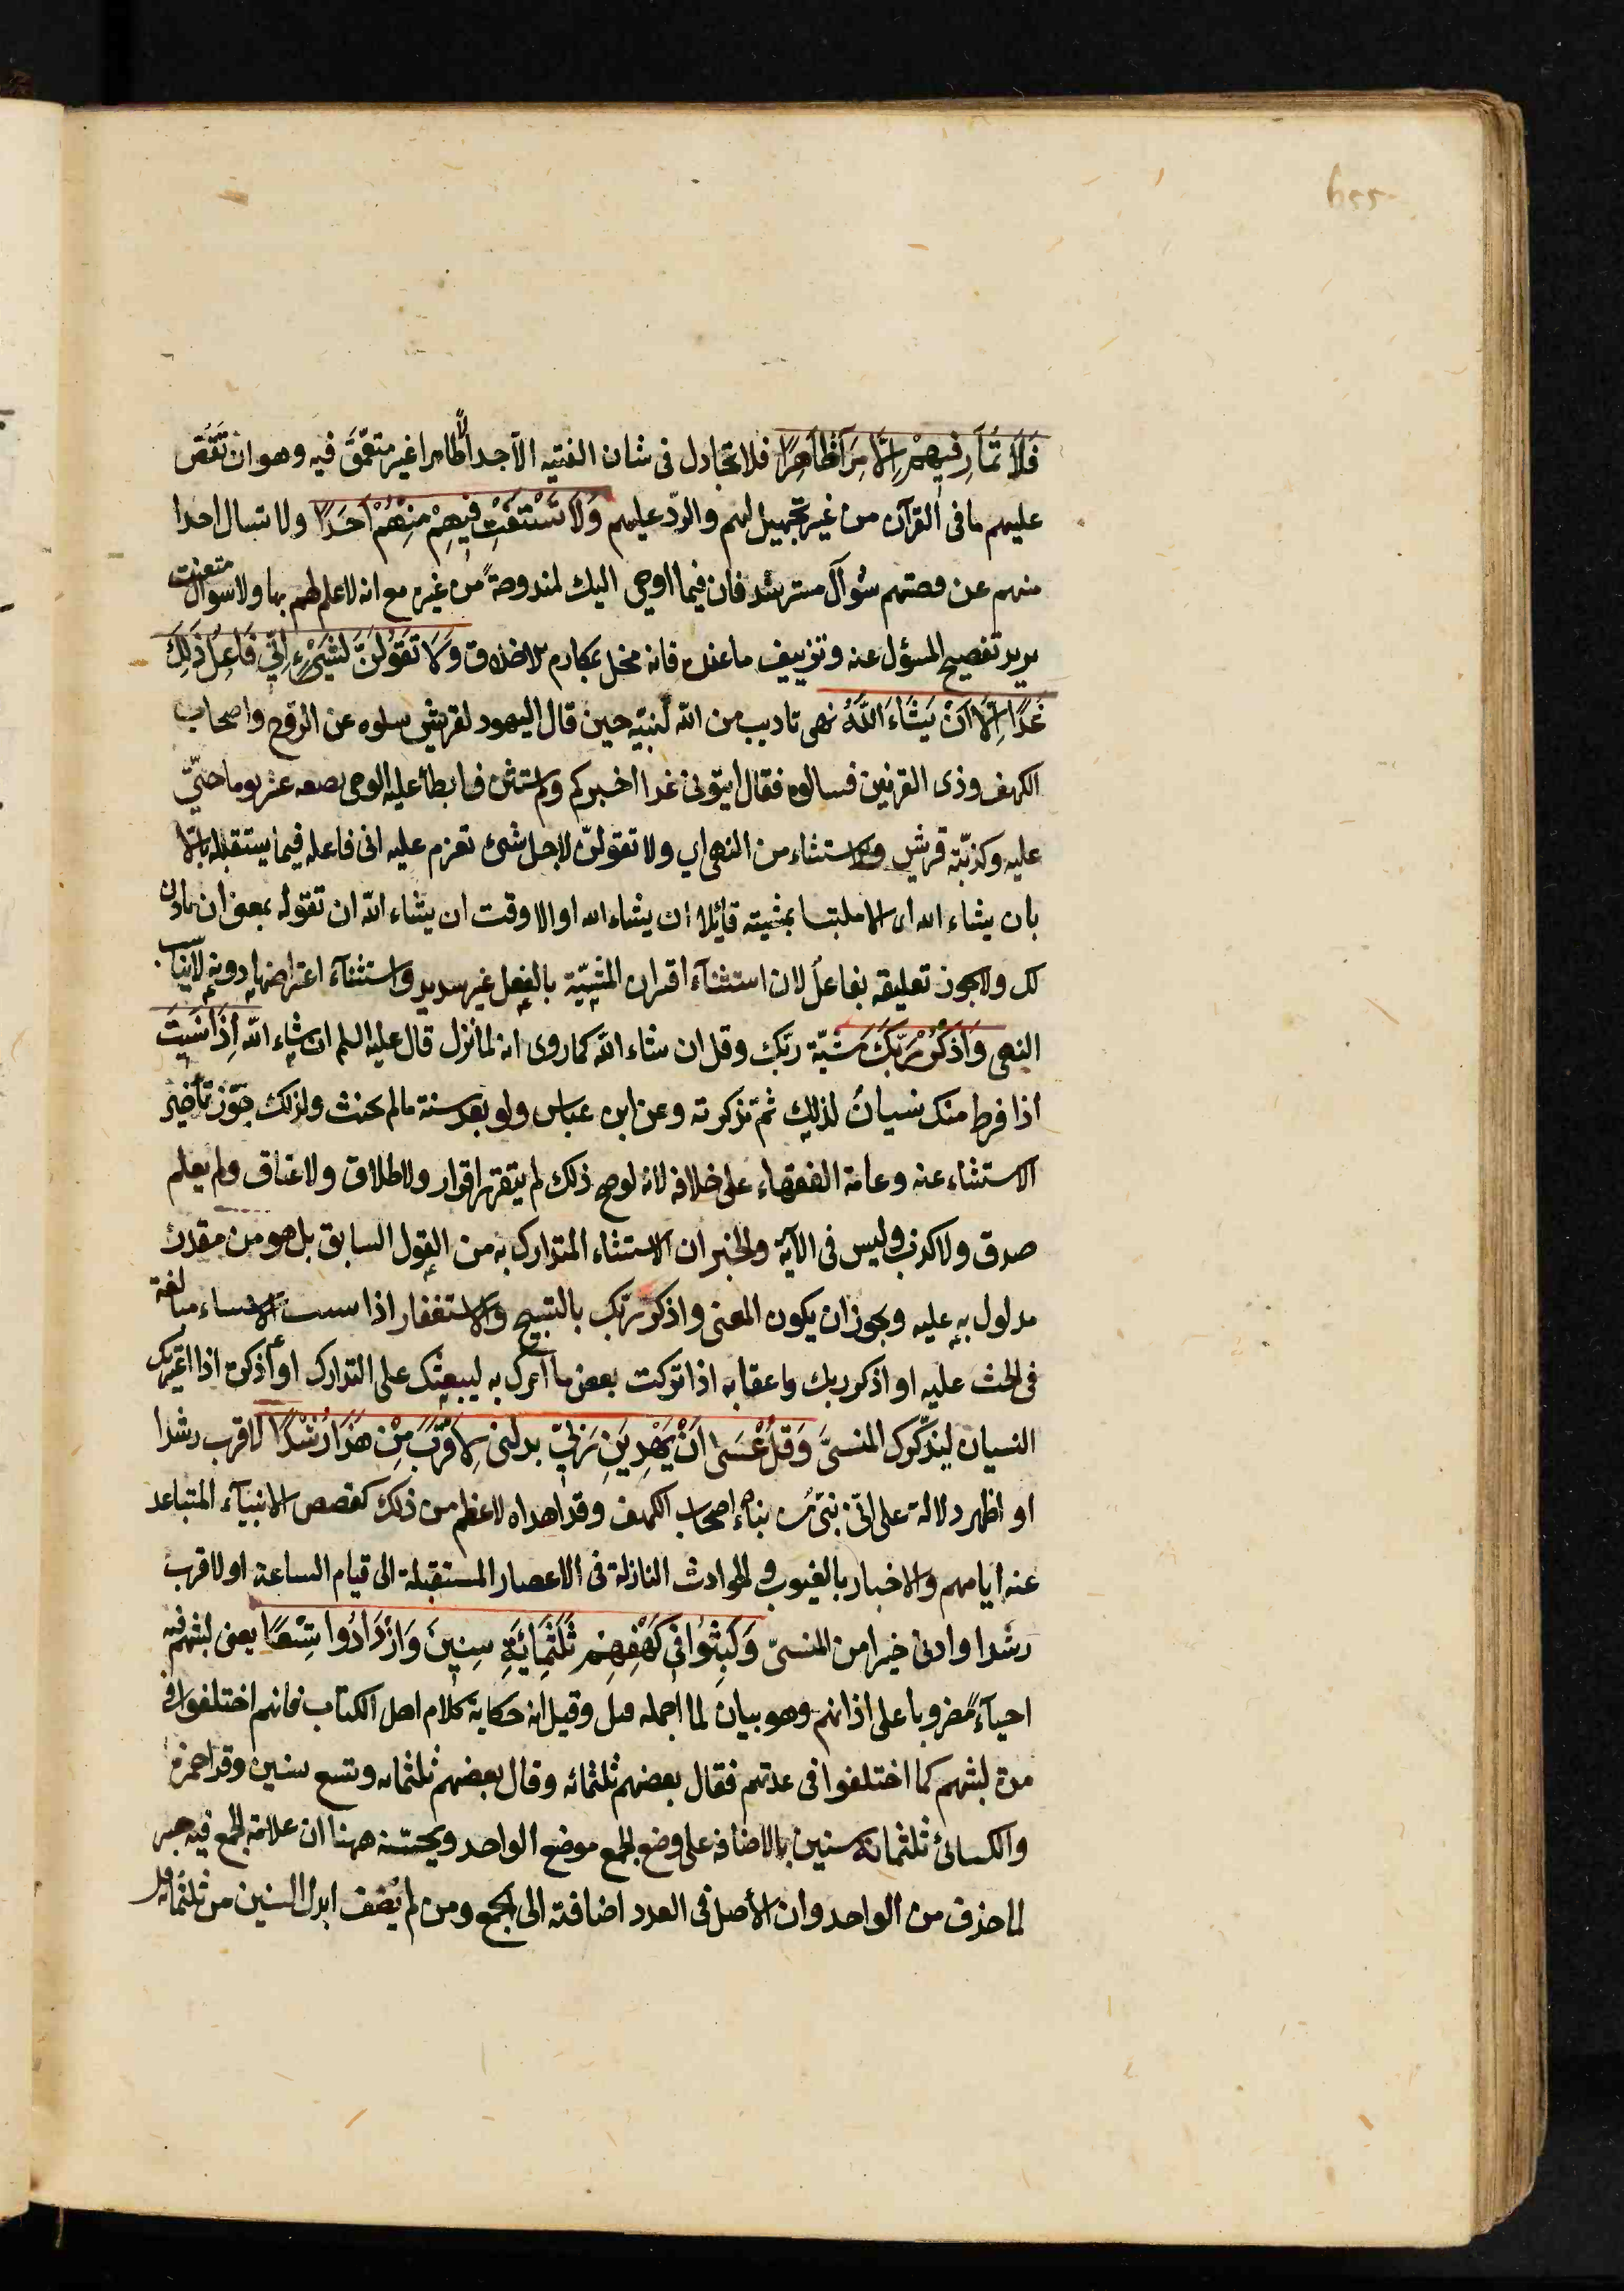 فَلَا تُمَارِ فِيهِمْ اِلَّا مِرَآءً ظَاهِرًا فلا تجادل فى شان الفتيه الآ جدالاً ظاهرا غير متعمّق فيه وهو ان تَقُصّ
عليهم ما فى القرآن من غير تجهيل لهم والردّ عليهم وَلَا تَسْتَفْتِ فِيهِمْ مِنْهُمْ اَحَدًا ولا تسال احدا
منهم عن قصتهم سُوآل مسترشد فان فيما اوحى اليك لمندوحةً من غيره مع انه لا علم لهم بها ولا سوال متعنت
يريد تفضيح المسؤل عنه وتزييف ما عنده فانه مخل بمكارم الاخلاق وَلَا تَقُولَنَّ لِشَىْءٍ اِنِّي فَاعِلٌ ذَلِكَ
غَدًا اِلَّا اَنْ يَشَاءَ اللَّهُ نهى تاديب من الله لنبيّه حين قال اليهود لقريش سلوه عن الروح واصحاب
الكهف وذى القرنين فسالوه فقال ايتونى غدا اخبركم ولم يستثن فابطأ عليه الوحى بضعه عشر يوما حتّى
عليه وكذبّته قريش والاستثناء من النهى اي ولا تقولنّ لاجل شئ تعزم عليه انى فاعله فيما يستقبل الا
بان يشاء الله اى الا ملتبسا بمشيته قائلا ان يشاء الله او الا وقت ان يشاء الله ان تقوله بمعنى ان ياذن
لك ولا يجوز تعليقه بفاعل لان استثنآء اقتران المشيّة بالفعل غير سديد واستثنآء اعتراضها دونه لا يناسب
النهى وَاذْكُرْ رَبَّكَ مشيّة ربّك وقل ان شاء الله كما روى انه لما نزل قال عليه السلم ان شاء الله اِذَا نَسِيتَ
اذا فرط منك نسيانٌ لذلك ثمّ تذكرته وعن ابن عباس ولو بعد سنة ما لم يحنث ولذلك جوّز تأخير
الاستثناء عنه وعامة الفقهاء على خلافه لانه لو صح ذلك لم يتقرر اقرار ولا طلاق ولا عتاق ولم يعلم
صدق ولا كذب وليس فى الآية والخبر ان الاستثناء المتدارك به من القول السابق بل هو من مقدر
مدلول به عليه ويجوز ان يكون المعنى واذكر ربّك بالتسبيح والاستغفار اذا نسيت الاستثناء مبالغة
فى الحث عليه او اذكر ربك وعقابه اذا تركت بعض ما امرك به ليبعثك على التدارك او أذكره اذا اعتريك
النسيان ليذكّرك المنسىَّ وَقُلْ عَسَى اَنْ يَهْدِيَنِ رَبِّي يدلنى لِاَقْرَبَ مِنْ هَذَا رُشْدًا لاقرب رشدا
او اظهر دلالة على انّى نبىّ من نباء اصحاب الكهف وقد اهداه لاعظم من ذلك كقصص الانبيآء المتباعد
عنه ايامهم والاخبار بالغيوب والحوادث النازلة فى الاعصار المستقبلة الى قيام الساعة او لاقرب
رشدا وادنى خيرا من المنسىّ وَلَبِثُوا فِي كَهْفِهِمْ ثَلَثَمِائَةٍ سِنِينَ وَازْدَادُوا تِسْعًا يعنى لبثهم فيه
احيآءً مضروبا على اذانهم وهو بيان لما اجمله قبل وقيل انه حكاية كلام اهل الكتاب فانهم اختلفوا فى
مدة لبثهم كما اختلفوا فى عدتهم فقال بعضهم ثلثمائه وقال بعضهم ثلثمائه وتسع سنين وقرا حمزة
والكسائى ثلثمائة سنين بالاضافه على وضع الجمع موضع الواحد ويحسّنه ههنا ان علامة الجمع فيه جبر
لما حذف من الواحد وان الأصل فى العدد اضافته الى الجمع ومن لم يُضف ابدل السنين من ثلثمائه